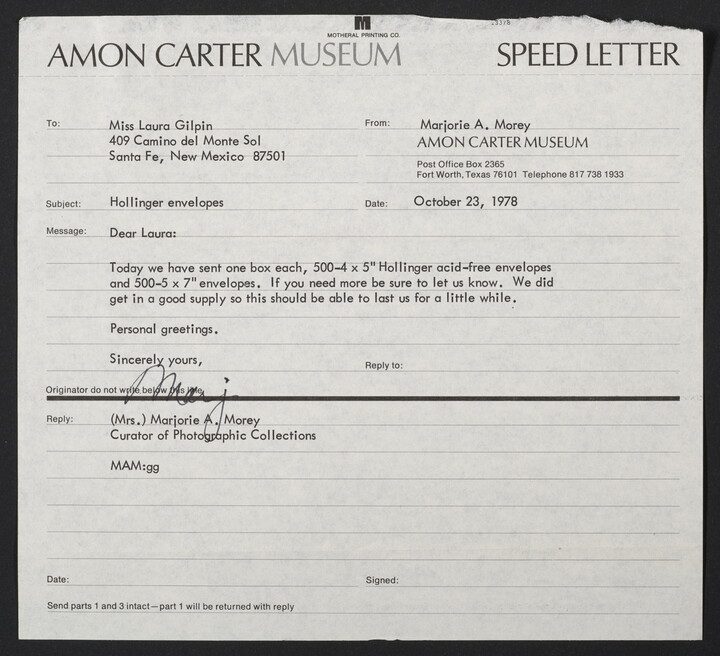 MOTHERAL PRINTING CO.
AMON CARTER MUSEUM SPEED LETTER
To: Miss Laura Gilpin
409 Camino del Monte Sol
Santa Fe, New Mexico 87501
From: Marjorie A. Morey
AMON CARTER MUSEUM
Post Office Box 2365
Fort Worth, Texas 76101 Telephone 817 738 1933
Subject: Hollinger envelopes
Date: October 23, 1978
Message: Dear Laura:
Today we have sent one box each, 500-4 x 5" Hollinger acid-free envelopes
and 500-5 x 7" envelopes. If you need more be sure to let us know. We did
get in a good supply so this should be able to last us for a little while.
Personal greetings.
Sincerely yours,
Reply to:
Marj
Originator do not write below this line
Reply: (Mrs.) Marjorie A. Morey
Curator of Photographic Collections
MAM:gg
Date: Signed:
Send parts 1 and 3 intact—part 1 will be returned with reply